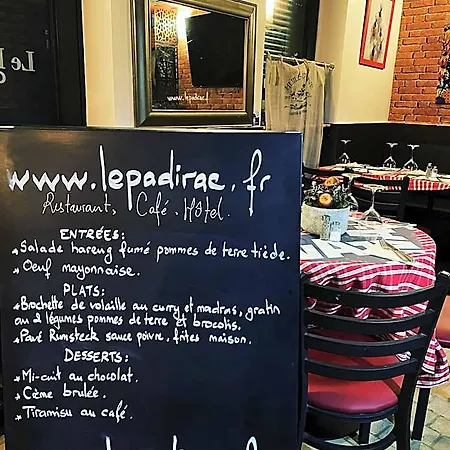 Le P
www.lepadirac.fr
www.lepadirac.fr
Restaurant, Café, Hôtel.
ENTRÉES:
*Salade hareng fumé pommes de terre tiède.
*Oeuf mayonnaise.
PLATS:
*Brochette de volaille au curry et madras, gratin
au 2 légumes pommes de terre et brocolis.
*Pavé Rumsteck sauce poivre, frites maison.
DESSERTS:
*Mi-cuit au chocolat.
*Cème brulée.
*Tiramisu au café.